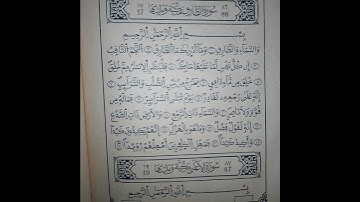 سُورَةُ الطَّارِقِ مَكِّيَّة وَآيَاتُهَا
بِسْمِ اللَّهِ الرَّحْمَٰنِ الرَّحِيمِ
وَالسَّمَاءِ وَالطَّارِقِ ۝ وَمَا أَدْرَىٰكَ مَا الطَّارِقُ ۝ النَّجْمُ الثَّاقِبُ
۝ إِن كُلُّ نَفْسٍ لَّمَّا عَلَيْهَا حَافِظٌ ۝ فَلْيَنظُرِ الْإِنسَٰنُ مِمَّ خُلِقَ
۝ خُلِقَ مِن مَّاءٍ دَافِقٍ ۝ يَخْرُجُ مِن بَيْنِ الصُّلْبِ وَالتَّرَائِبِ ۝
إِنَّهُ عَلَىٰ رَجْعِهِ لَقَادِرٌ ۝ يَوْمَ تُبْلَى السَّرَائِرُ ۝ فَمَا لَهُ مِن
قُوَّةٍ وَلَا نَاصِرٍ ۝ وَالسَّمَاءِ ذَاتِ الرَّجْعِ ۝ وَالْأَرْضِ ذَاتِ الصَّدْعِ
۝ إِنَّهُ لَقَوْلٌ فَصْلٌ ۝ وَمَا هُوَ بِالْهَزْلِ ۝ إِنَّهُمْ يَكِيدُونَ كَيْدًا
۝ وَأَكِيدُ كَيْدًا ۝ فَمَهِّلِ الْكَٰفِرِينَ أَمْهِلْهُمْ رُوَيْدًا ۝
سُورَةُ الأَعْلَى مَكِّيَّة وَآيَاتُهَا
بِسْمِ اللَّهِ الرَّحْمَٰنِ الرَّحِيمِ